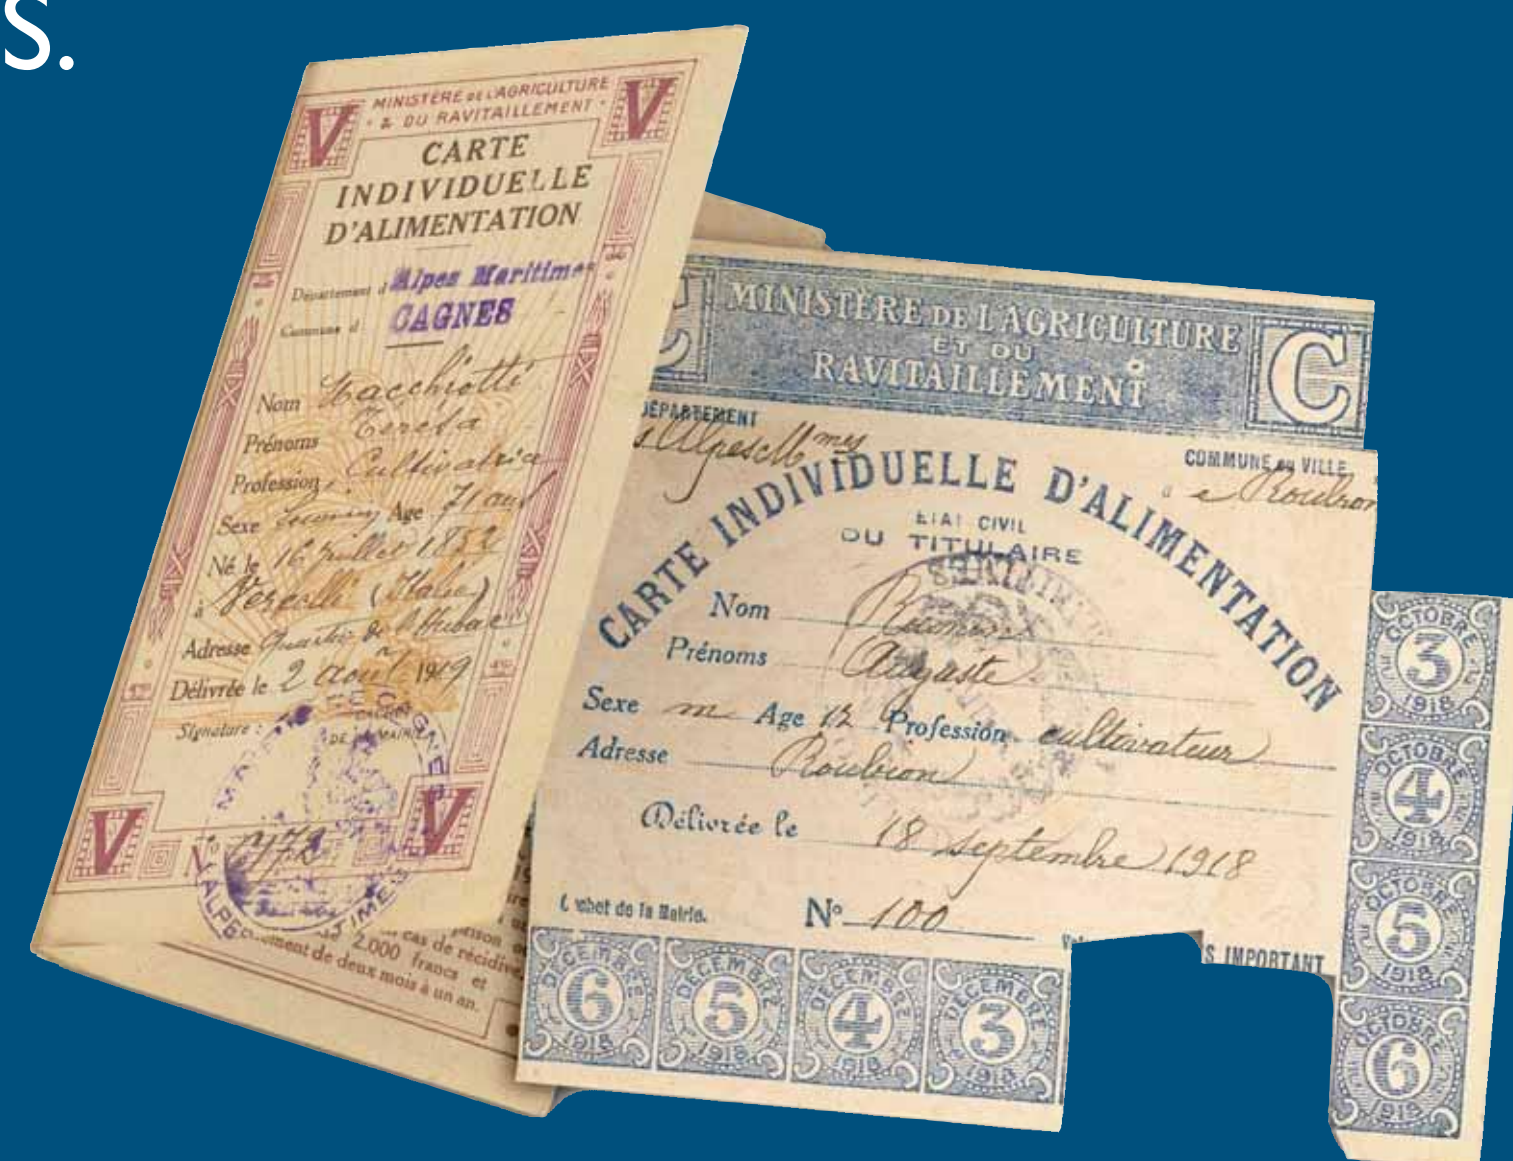 S.
V
MINISTÈRE DE L'AGRICULTURE
& DU RAVITAILLEMENT
V
CARTE
INDIVIDUELLE
D'ALIMENTATION
Département d Alpes Maritimes
Commune d CAGNES
Nom
Prénoms
Profession Cultivatrice
Sexe Age 71 ans
Né le 16 Juillet
à Vercelli (Italie)
Adresse Quartier de
Délivrée le 2 août 1919
Signature :
CACHET
DE LA MAIRIE
V
V
prison
cas de récidive
2.000 francs et
nement de deux mois à un an.
MINISTÈRE DE L'AGRICULTURE
ET DU
RAVITAILLEMENT
C
DÉPARTEMENT
s Alpes Mmes
COMMUNE ou VILLE
Roubion
CARTE INDIVIDUELLE D'ALIMENTATION
ETAT CIVIL
DU TITULAIRE
Nom
Prénoms Auguste
Sexe m Age 12 Profession cultivateur
Adresse Roubion
Délivrée le 18 septembre 1918
Cachet de la Mairie.
N° 100
S IMPORTANT
DÉCEMBRE 6 1918
DÉCEMBRE 5 1918
DÉCEMBRE 4 1918
DÉCEMBRE 3 1918
OCTOBRE 3 1918
OCTOBRE 4 1918
OCTOBRE 5 1918
OCTOBRE 6 1918